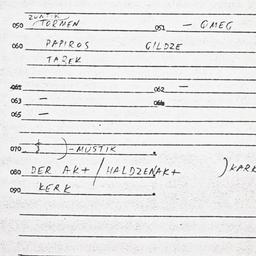 ZUATIK
050 TORMEN 051 - OMEG
060 PAPIROS GILDZE
TAREK
061 062 -
063 - 064
065 -
070 $ ) - MUSTIK
080 DER AK+ / HALDZENAK+ ) KARK
090 KERK